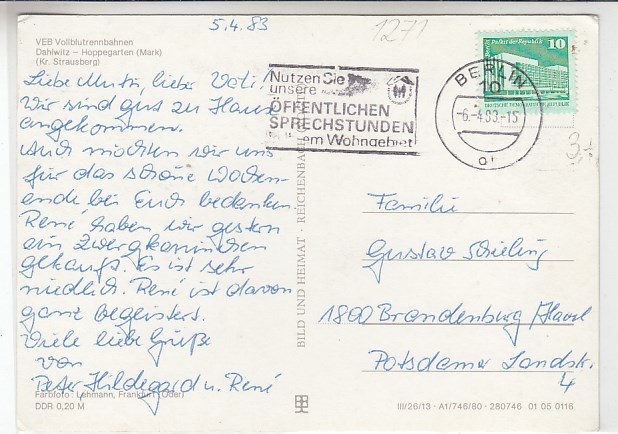 5.4.83
1271
VEB Vollblutrennbahnen
Dahlwitz – Hoppegarten (Mark)
(Kr. Strausberg)
Liebe Mutti, lieber Vati!
Wir sind gut zu Hause
angekommen.
Auch möchten wir uns
für das schöne Wochen-
ende bei Euch bedanken.
René haben wir gestern
ein Zwergkaninchen
gekauft. Es ist sehr
niedlich. René ist davon
ganz begeistert.
Viele liebe Grüße
von
Peter, Hildegard u. René
Farbfoto: Lehmann, Frankfurt (Oder)
DDR 0,20 M
BILD UND HEIMAT · REICHENBACH
Nutzen Sie
unsere
ÖFFENTLICHEN
SPRECHSTUNDEN
im Wohngebiet
BERLIN
-6.-4.83.-15
Palast der Republik
10
Familie
Gustav Schieling
1800 Brandenburg/Havel
Potsdamer Landstr.
4
III/26/13 · A1/746/80 · 280746 01 05 0116